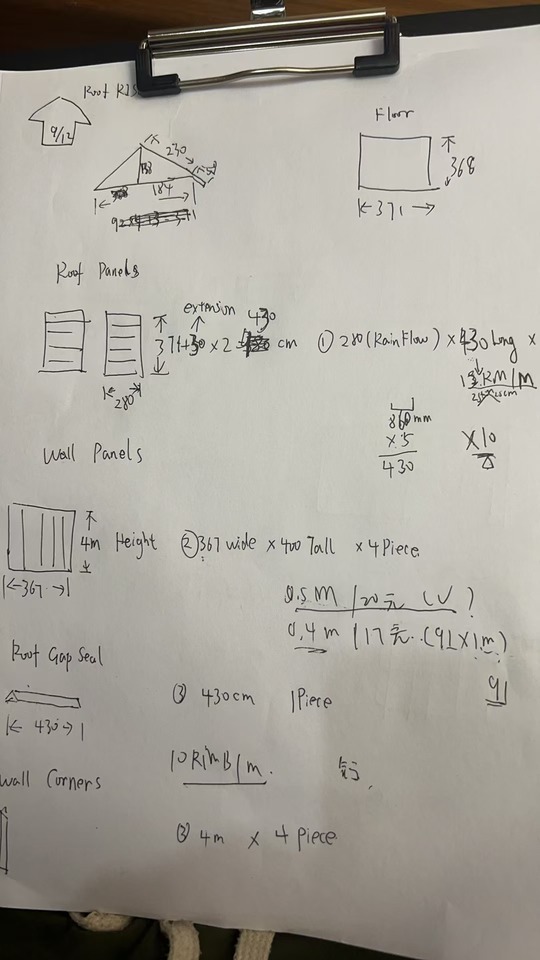 Roof
9/12
230
184
Floor
368
371
Roof Panels
extension
430
371+30 x 2 = cm
280
① 280 (Rain Flow) x 430 Long x
RM/M
860mm
x 5
430
x10
Wall Panels
4m Height
367
② 367 wide x 400 Tall x 4 Piece
0.5M /20元 (V)?
0.4m /17元 (91x1m)
91
Roof Gap Seal
430
③ 430cm 1 Piece
10 RMB/m.
Wall Corners
③ 4m x 4 Piece